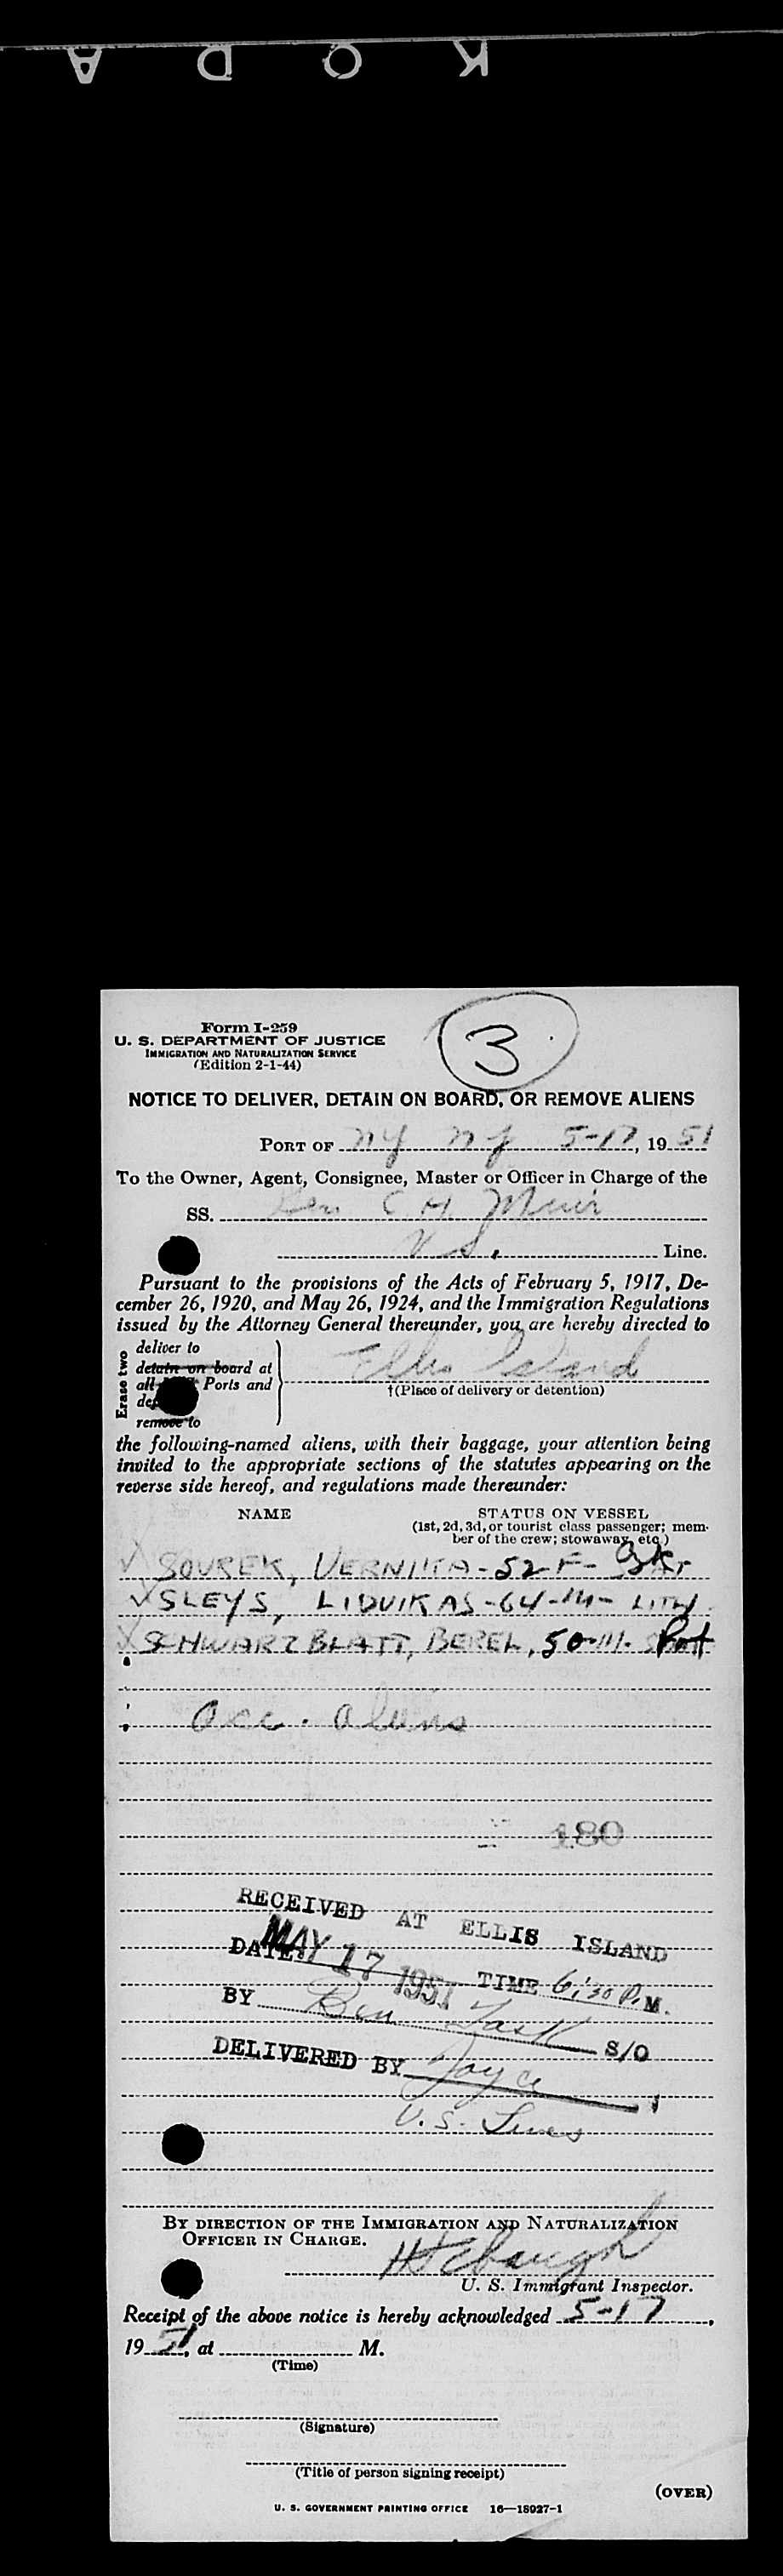 K O D A
3
Form I-259
U. S. DEPARTMENT OF JUSTICE
IMMIGRATION AND NATURALIZATION SERVICE
(Edition 2-1-44)
NOTICE TO DELIVER, DETAIN ON BOARD, OR REMOVE ALIENS
PORT OF NY NY 5-17, 1951
To the Owner, Agent, Consignee, Master or Officer in Charge of the
SS. Gen C H Muir
U S. Line.
Pursuant to the provisions of the Acts of February 5, 1917, De-
cember 26, 1920, and May 26, 1924, and the Immigration Regulations
issued by the Attorney General thereunder, you are hereby directed to
Erase two
deliver to
detain on board at
all Ports and
remove to
Ellis Island
†(Place of delivery or detention)
the following-named aliens, with their baggage, your attention being
invited to the appropriate sections of the statutes appearing on the
reverse side hereof, and regulations made thereunder:
NAME STATUS ON VESSEL
(1st, 2d, 3d, or tourist class passenger; mem-
ber of the crew; stowaway, etc.)
✓ SOUREK, - 52 F -
✓ SLEYS, LIDVIKAS - 64 - M - LITH
✓ SCHWARZBLATT, BEREL, 50 - M -
Acc. aliens
180
RECEIVED AT ELLIS ISLAND
DATE: MAY 17 1951 TIME 6:30 P. M.
BY Ben Task S/O
DELIVERED BY Joyce
U.S. Lines
BY DIRECTION OF THE IMMIGRATION AND NATURALIZATION
OFFICER IN CHARGE.
U. S. Immigrant Inspector.
Receipt of the above notice is hereby acknowledged 5-17,
1951, at M.
(Time)
(Signature)
(Title of person signing receipt)
(OVER)
U. S. GOVERNMENT PRINTING OFFICE 16—18027-1